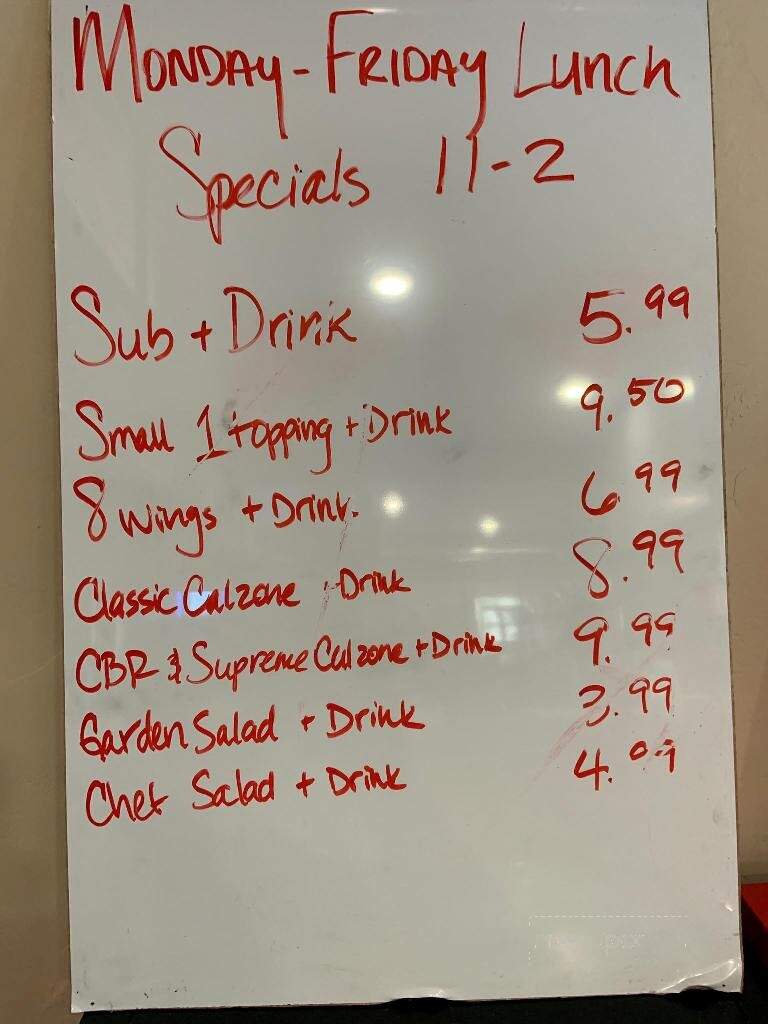 Monday - Friday Lunch
Specials 11-2
Sub + Drink 5.99
Small 1 topping + Drink 9.50
8 wings + Drink 6.99
Classic Calzone + Drink 8.99
CBR & Supreme Calzone + Drink 9.99
Garden Salad + Drink 3.99
Chef Salad + Drink 4.99